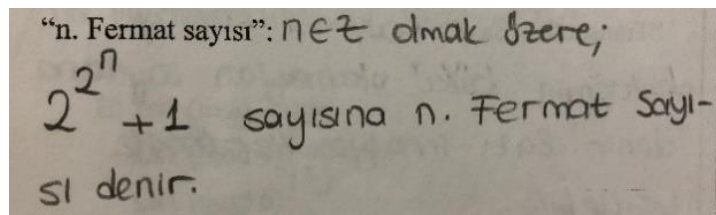 “n. Fermat sayısı”: n∈Z olmak üzere;
2^2^n + 1 sayısına n. Fermat Sayı-
sı denir.